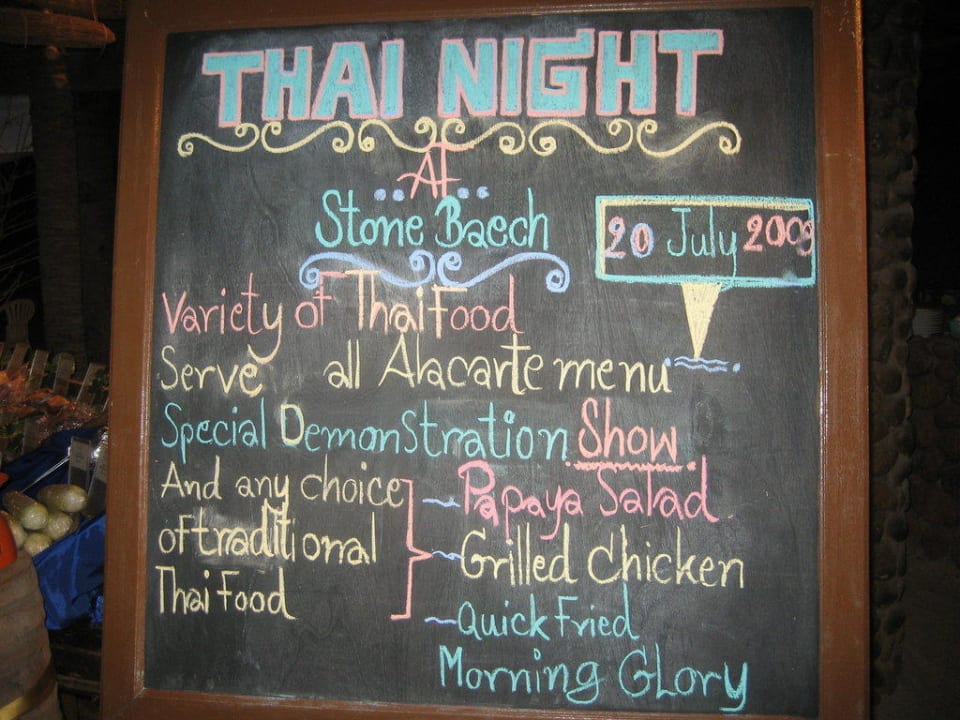 THAI NIGHT
At
Stone Baech
20 July 2009
Variety of Thai Food
Serve all Alacarte menu
Special Demonstration Show
And any choice
of traditional
Thai Food
Papaya Salad
Grilled Chicken
Quick Fried
Morning GLory